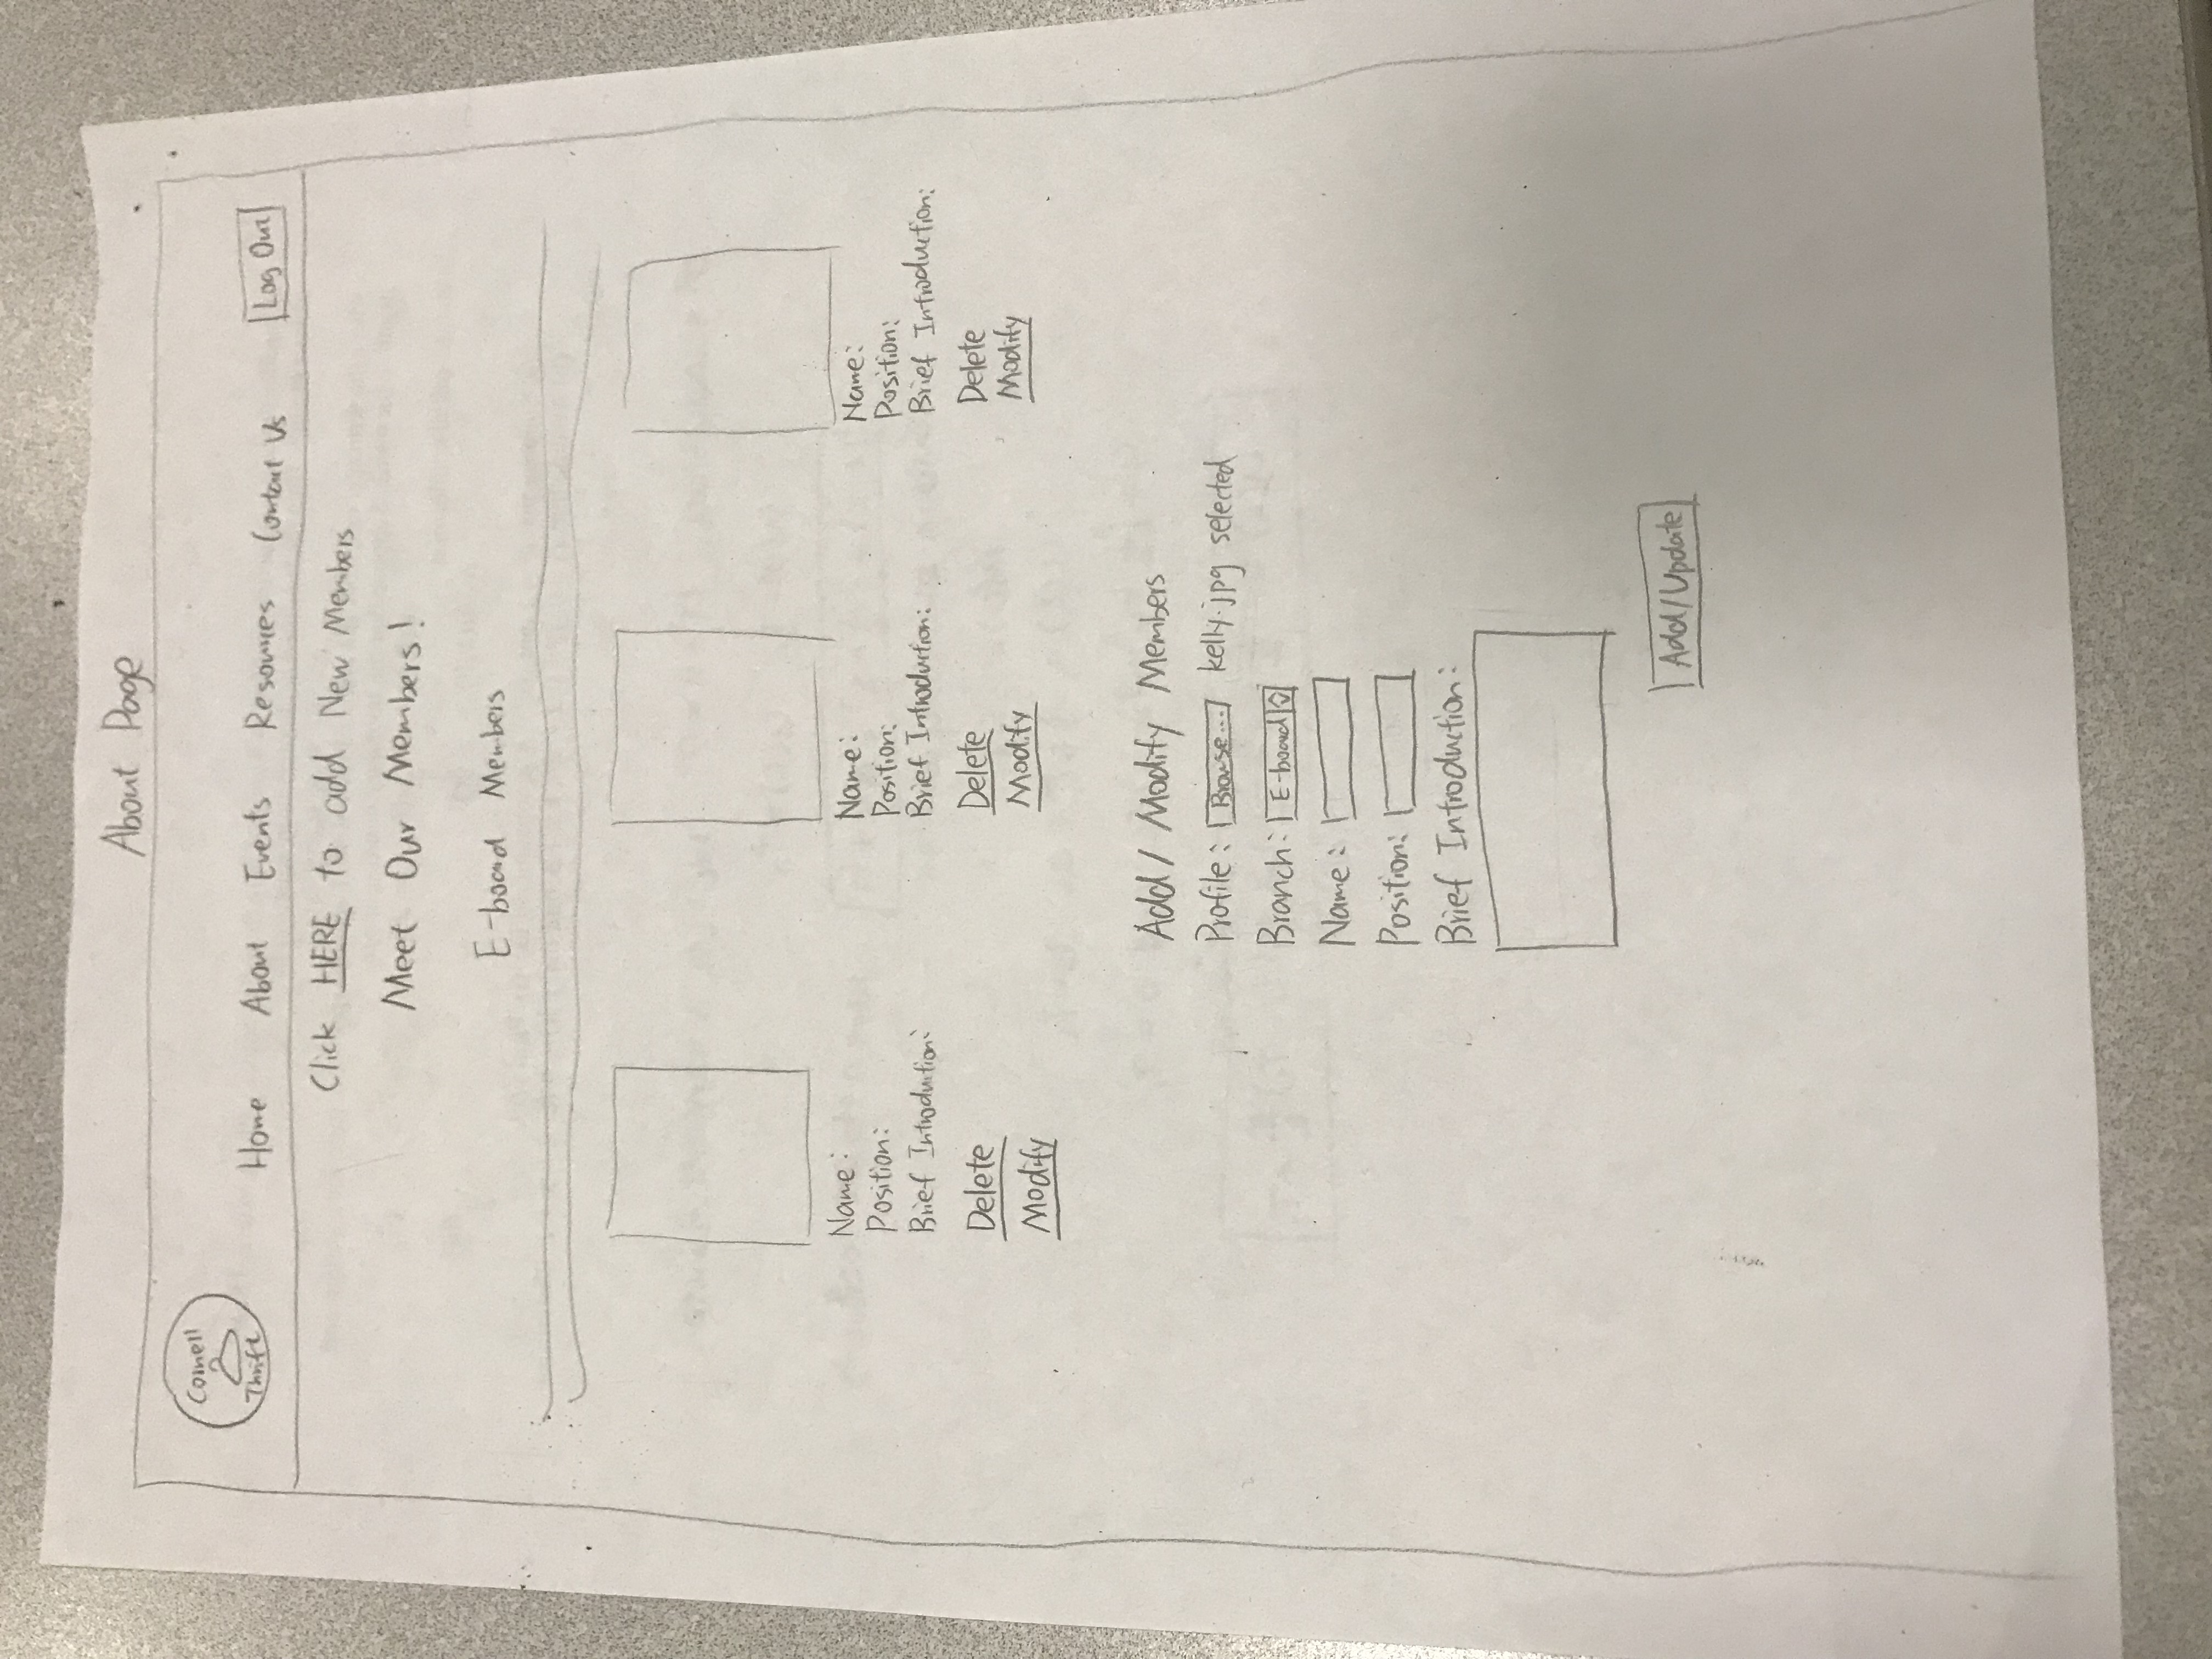 About Page
Cornell
Thrift
Home About Events Resources Contact Us Log Out
Click HERE to add New Members
Meet Our Members!
E-board Members
Name:
Position:
Brief Introduction:
Delete
Modify
Name:
Position:
Brief Introduction:
Delete
Modify
Name:
Position:
Brief Introduction:
Delete
Modify
Add/Modify Members
Profile: Browse... kelly.jpg selected
Branch: E-board
Name:
Position:
Brief Introduction:
Add/Update